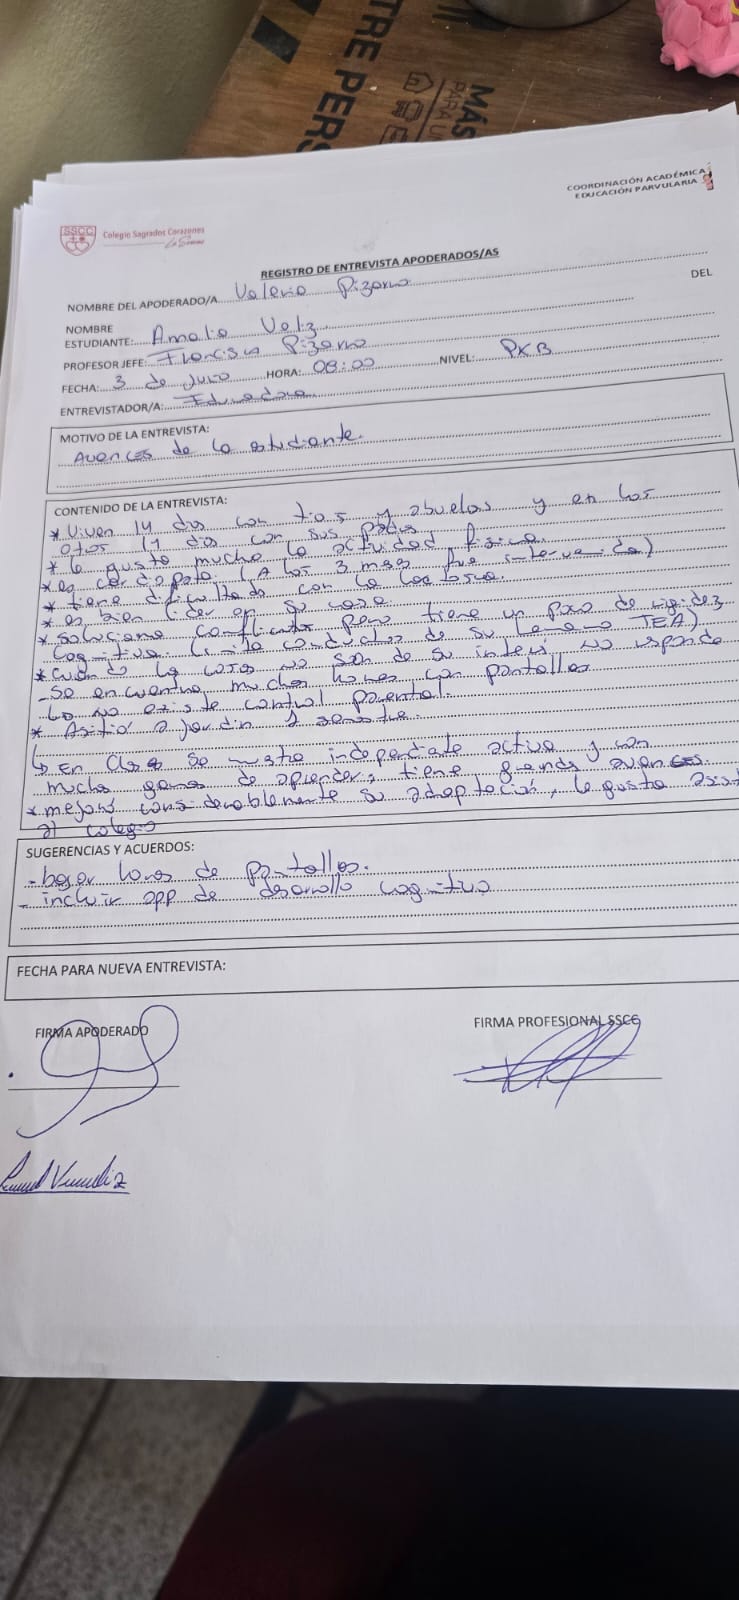 TRE PERS
MÁS
PARA U
COORDINACIÓN ACADÉMICA
EDUCACIÓN PARVULARIA
SSCC
Colegio Sagrados Corazones
La Serena
REGISTRO DE ENTREVISTA APODERADOS/AS
NOMBRE DEL APODERADO/A Valeria Pizarro
NOMBRE DEL
ESTUDIANTE: Amalia Veliz
PROFESOR JEFE: Francisca Pizarro
FECHA: 3 de Junio HORA: 08:00 NIVEL: PKB
ENTREVISTADOR/A: Educadora
MOTIVO DE LA ENTREVISTA:
Avances de la estudiante.
CONTENIDO DE LA ENTREVISTA:
* Viven 14 dias con tios y abuelos y en los
otros 14 dias con sus padres
* le gusta mucho la actividad fisica.
* es cardiopata. (A los 3 mses fue intervenida)
* tiene dificultades con la lectosa.
* es bien lider en su casa
* soluciona conflictos pero tiene un poco de rigidez
cognitiva. (imita conductas de su hermano TEA)
* cuando las cosas no son de su interés no responde
- se encuentra muchas horas con pantallas
no existe control parental.
* Asitió a jardin 1 semestre.
↳ En clases se mustra independiente activa y con
mucha ganas de aprender, tiene grands avances
* mejoró considerablemente su adaptación, le gusta asistir
al colegio
SUGERENCIAS Y ACUERDOS:
- bajar horas de pantallas.
- incluir app de desarrollo cognitivo
FECHA PARA NUEVA ENTREVISTA:
FIRMA APODERADO
FIRMA PROFESIONAL SSCC